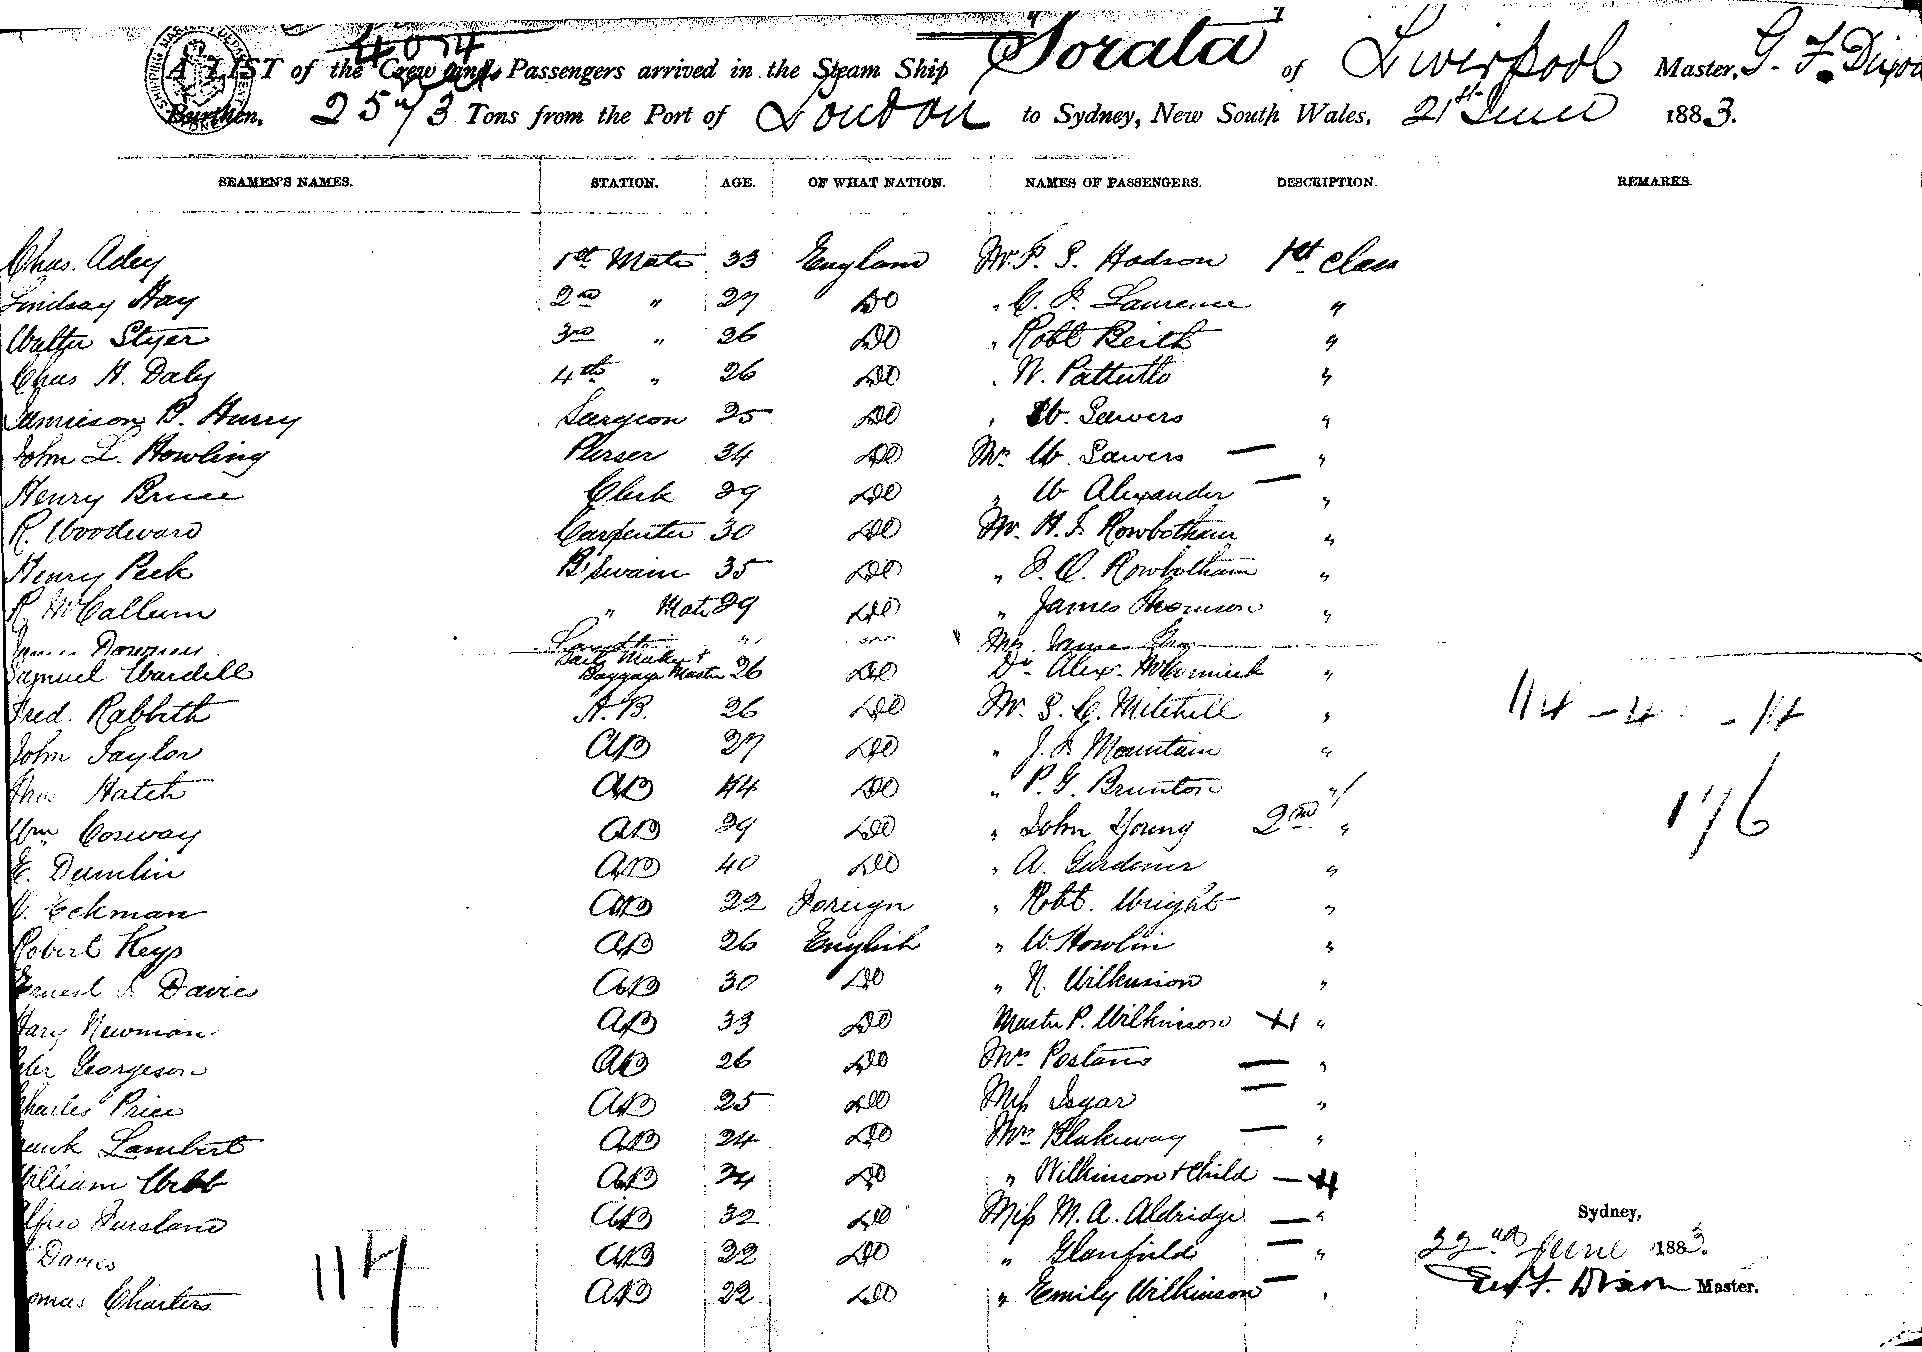 4014
A LIST of the Crew and Passengers arrived in the Steam Ship Sorata of Liverpool Master, G. F. Dixon
Burthen, 2573 Tons from the Port of London to Sydney, New South Wales, 21st June 1883.
SEAMEN'S NAMES. STATION. AGE. OF WHAT NATION. NAMES OF PASSENGERS. DESCRIPTION. REMARKS
Chas. Adey 1st Mate 33 England Mr. P. S. Hodson 1st Class
Lindsay Hay 2nd " 27 Do " C. J. Laurence "
Walter Styer 3rd " 26 Do " Robt Reith "
Chas H. Daly 4th " 26 Do " W. Pattullo "
Jamieson B. Hurry Surgeon 25 Do " W. Sawers "
John L. Howling Purser 34 Do Mrs W. Sawers — "
Henry Bruce Clerk 29 Do " W Alexander — "
R. Woodward Carpenter 30 Do Mr. H. J. Rowbotham "
Henry Peck B'swain 35 Do " Rowbotham "
R. McCallum " Mate 29 Do " James Thomson "
James
Samuel Wardell Sail Maker & Baggage Master 26 Do Dr Alex. McCormick "
Fred. Rabbith A.B. 26 Do Mr. S. C. Mitchell " 114 - 4 - 14
John Taylor AB 27 Do " J. Mountain "
Thos Hatch AB 44 Do " P. G. Brunton "
Wm Corway AB 29 Do " John Young 2nd " 176
E. Dumlin AB 40 Do " A. Gardener "
Eckman AB 22 Foreign " Robt. Wright "
Robert Keys AB 26 English " W. Howlin "
Ernest Davies AB 30 Do " N. Wilkinson "
Hary Newman AB 33 Do Master P. Wilkinson "
Peter Georgeson AB 26 Do Mrs Postans — "
Charles Price AB 25 Do Miss — "
Frank Lambert AB 24 Do Mrs Blakeway — "
William Webb AB 34 Do " Wilkinson & Child —
Alfred AB 32 Do Miss M. A. Aldridge — " Sydney,
Davies AB 32 Do " Glanfield — " 22nd June 1883.
Thomas Charters AB 22 Do " Emily Wilkinson — Dixon Master.
117